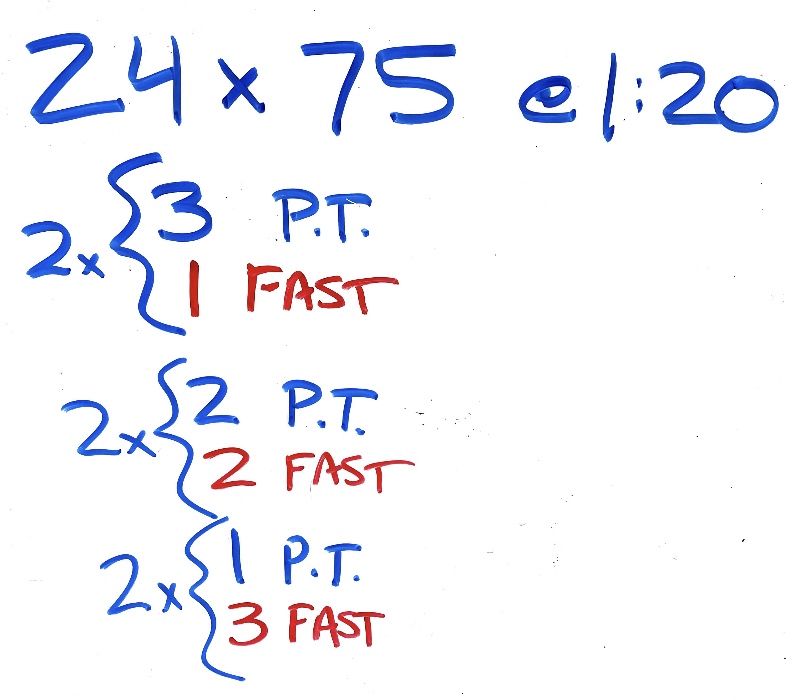 24 x 75 @ 1:20
2x { 3 P.T.
1 FAST
2x { 2 P.T.
2 FAST
2x { 1 P.T.
3 FAST